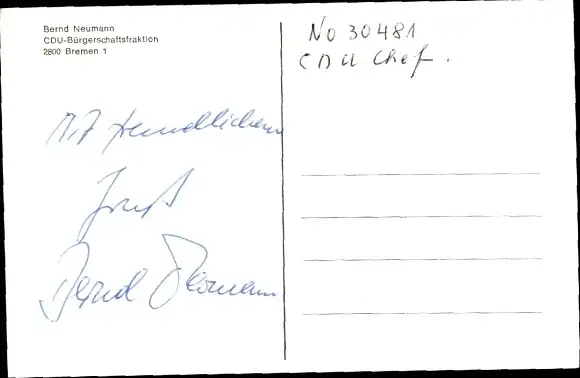 Bernd Neumann
CDU-Bürgerschaftsfraktion
2800 Bremen 1
Mit freundlichem
Gruß
Bernd Neumann
No 30481
CDU Chef.